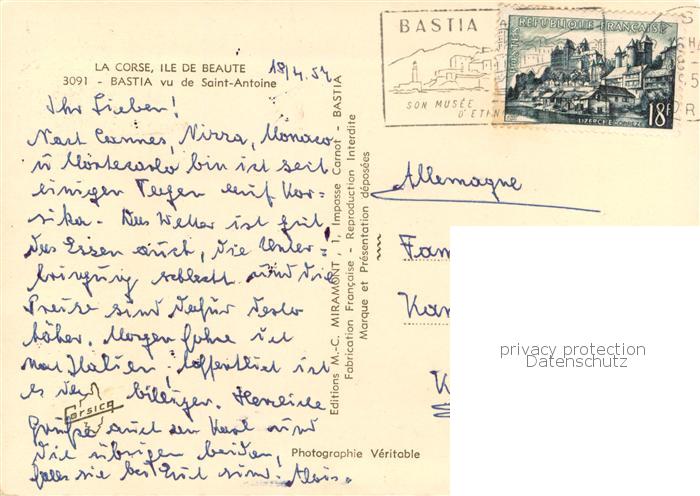 BASTIA
SON MUSÉE
D'ETHN
RÉPUBLIQUE FRANÇAISE
POSTES
UZERCHE-CORRÈZE
18F
LA CORSE, ILE DE BEAUTE
3091 - BASTIA vu de Saint-Antoine
18/4.57
Ihr Lieben!
Nach Cannes, Nizza, Monaco
u Montecarlo bin ich seit
einigen Tagen auf Kor-
sika. Das Wetter ist gut
das Essen auch, die Unter-
bringung schlecht und die
Preise sind dafür desto
höher. Morgen fahre ich
nach Italien; hoffentlich ist
es da billiger. Herzliche
Grüße auch an Karl und
die übrigen beiden,
falls sie bei Euch sind! Alois.
Corsica
Editions M.-C. MIRAMONT, 1, Impasse Carnot - BASTIA
Fabrication Française - Reproduction Interdite
Marque et Présentation déposées
Photographie Véritable
Allemagne
Fam
Kar
K
privacy protection
Datenschutz